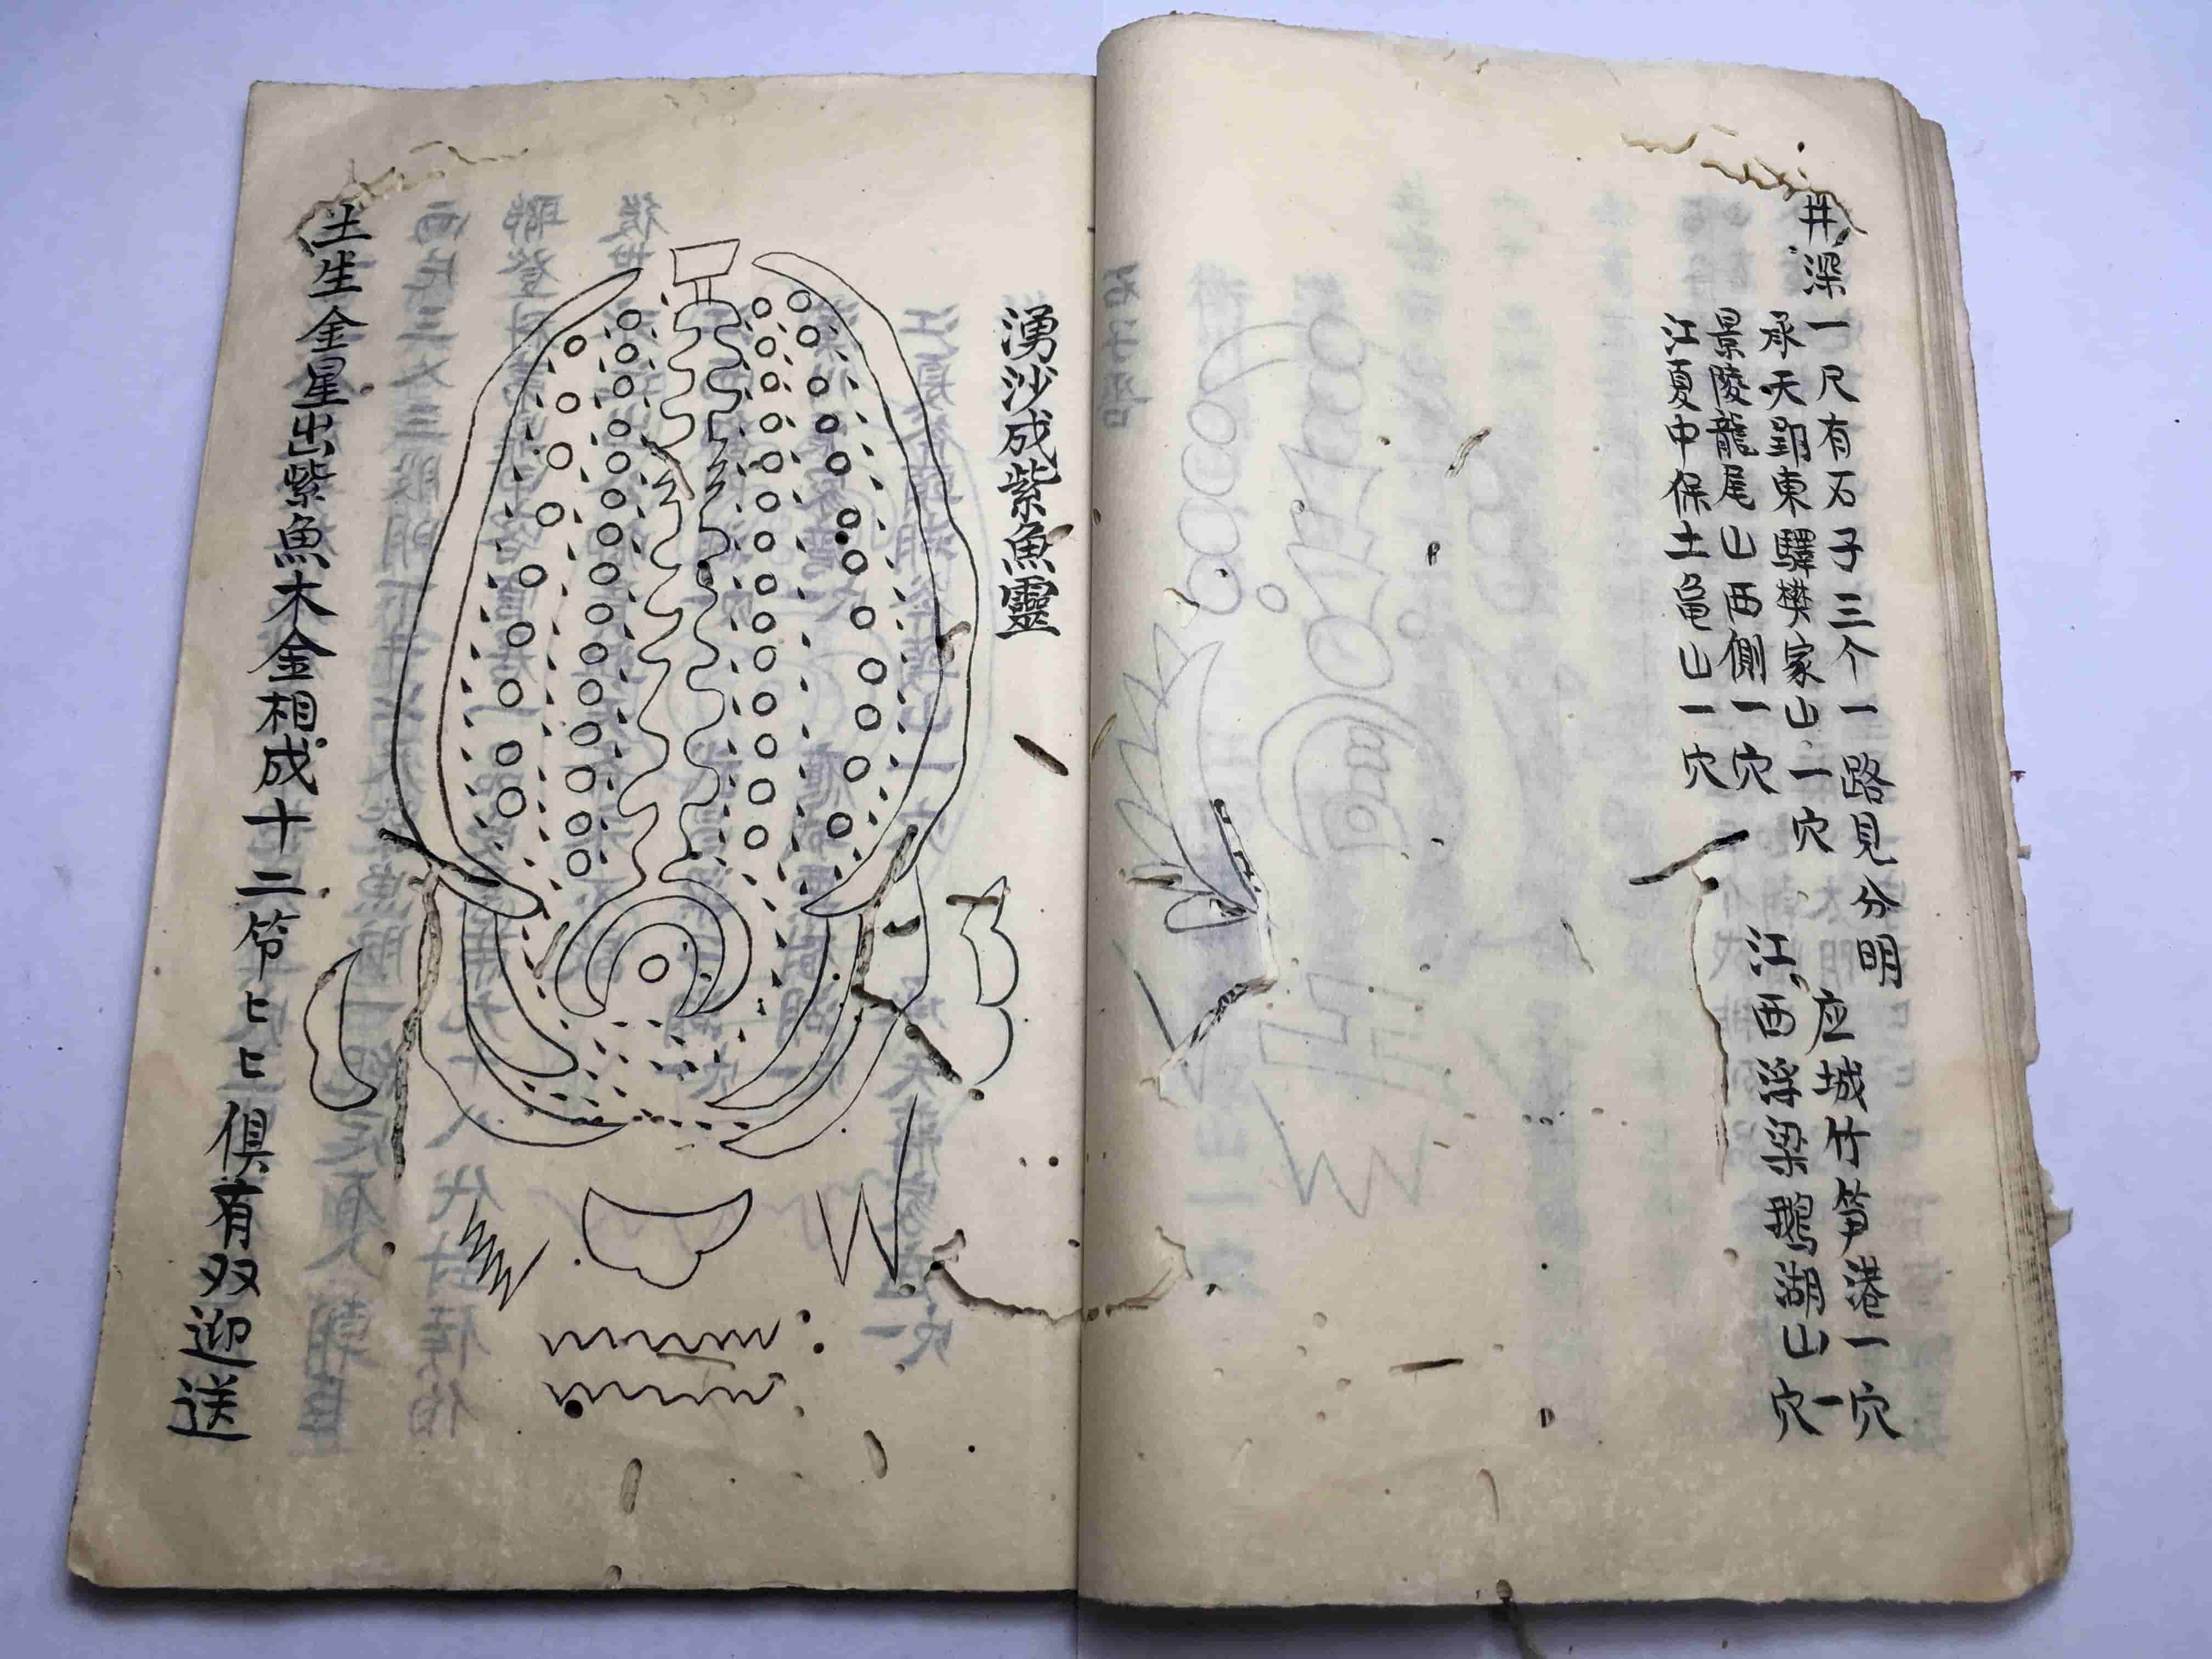 井深一尺有石子三个一路見分明
承天郢東驛樊家山一穴
景陵龍尾山西側一穴
江夏中保土龟山一穴
应城竹笋港一穴
江西浮梁鵝湖山一穴
湧沙成紫魚靈
土生金星出紫魚木金相成十二
俱有双迎送